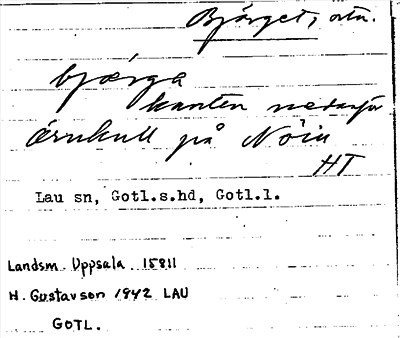 Björget, ortn.
bjærga
kanten nedanför
Örnkull på Nöiu
HT
Lau sn, Gotl.s.hd, Gotl.l.
Landsm. Uppsala 15811
H. Gustavson 1942 LAU
GOTL.